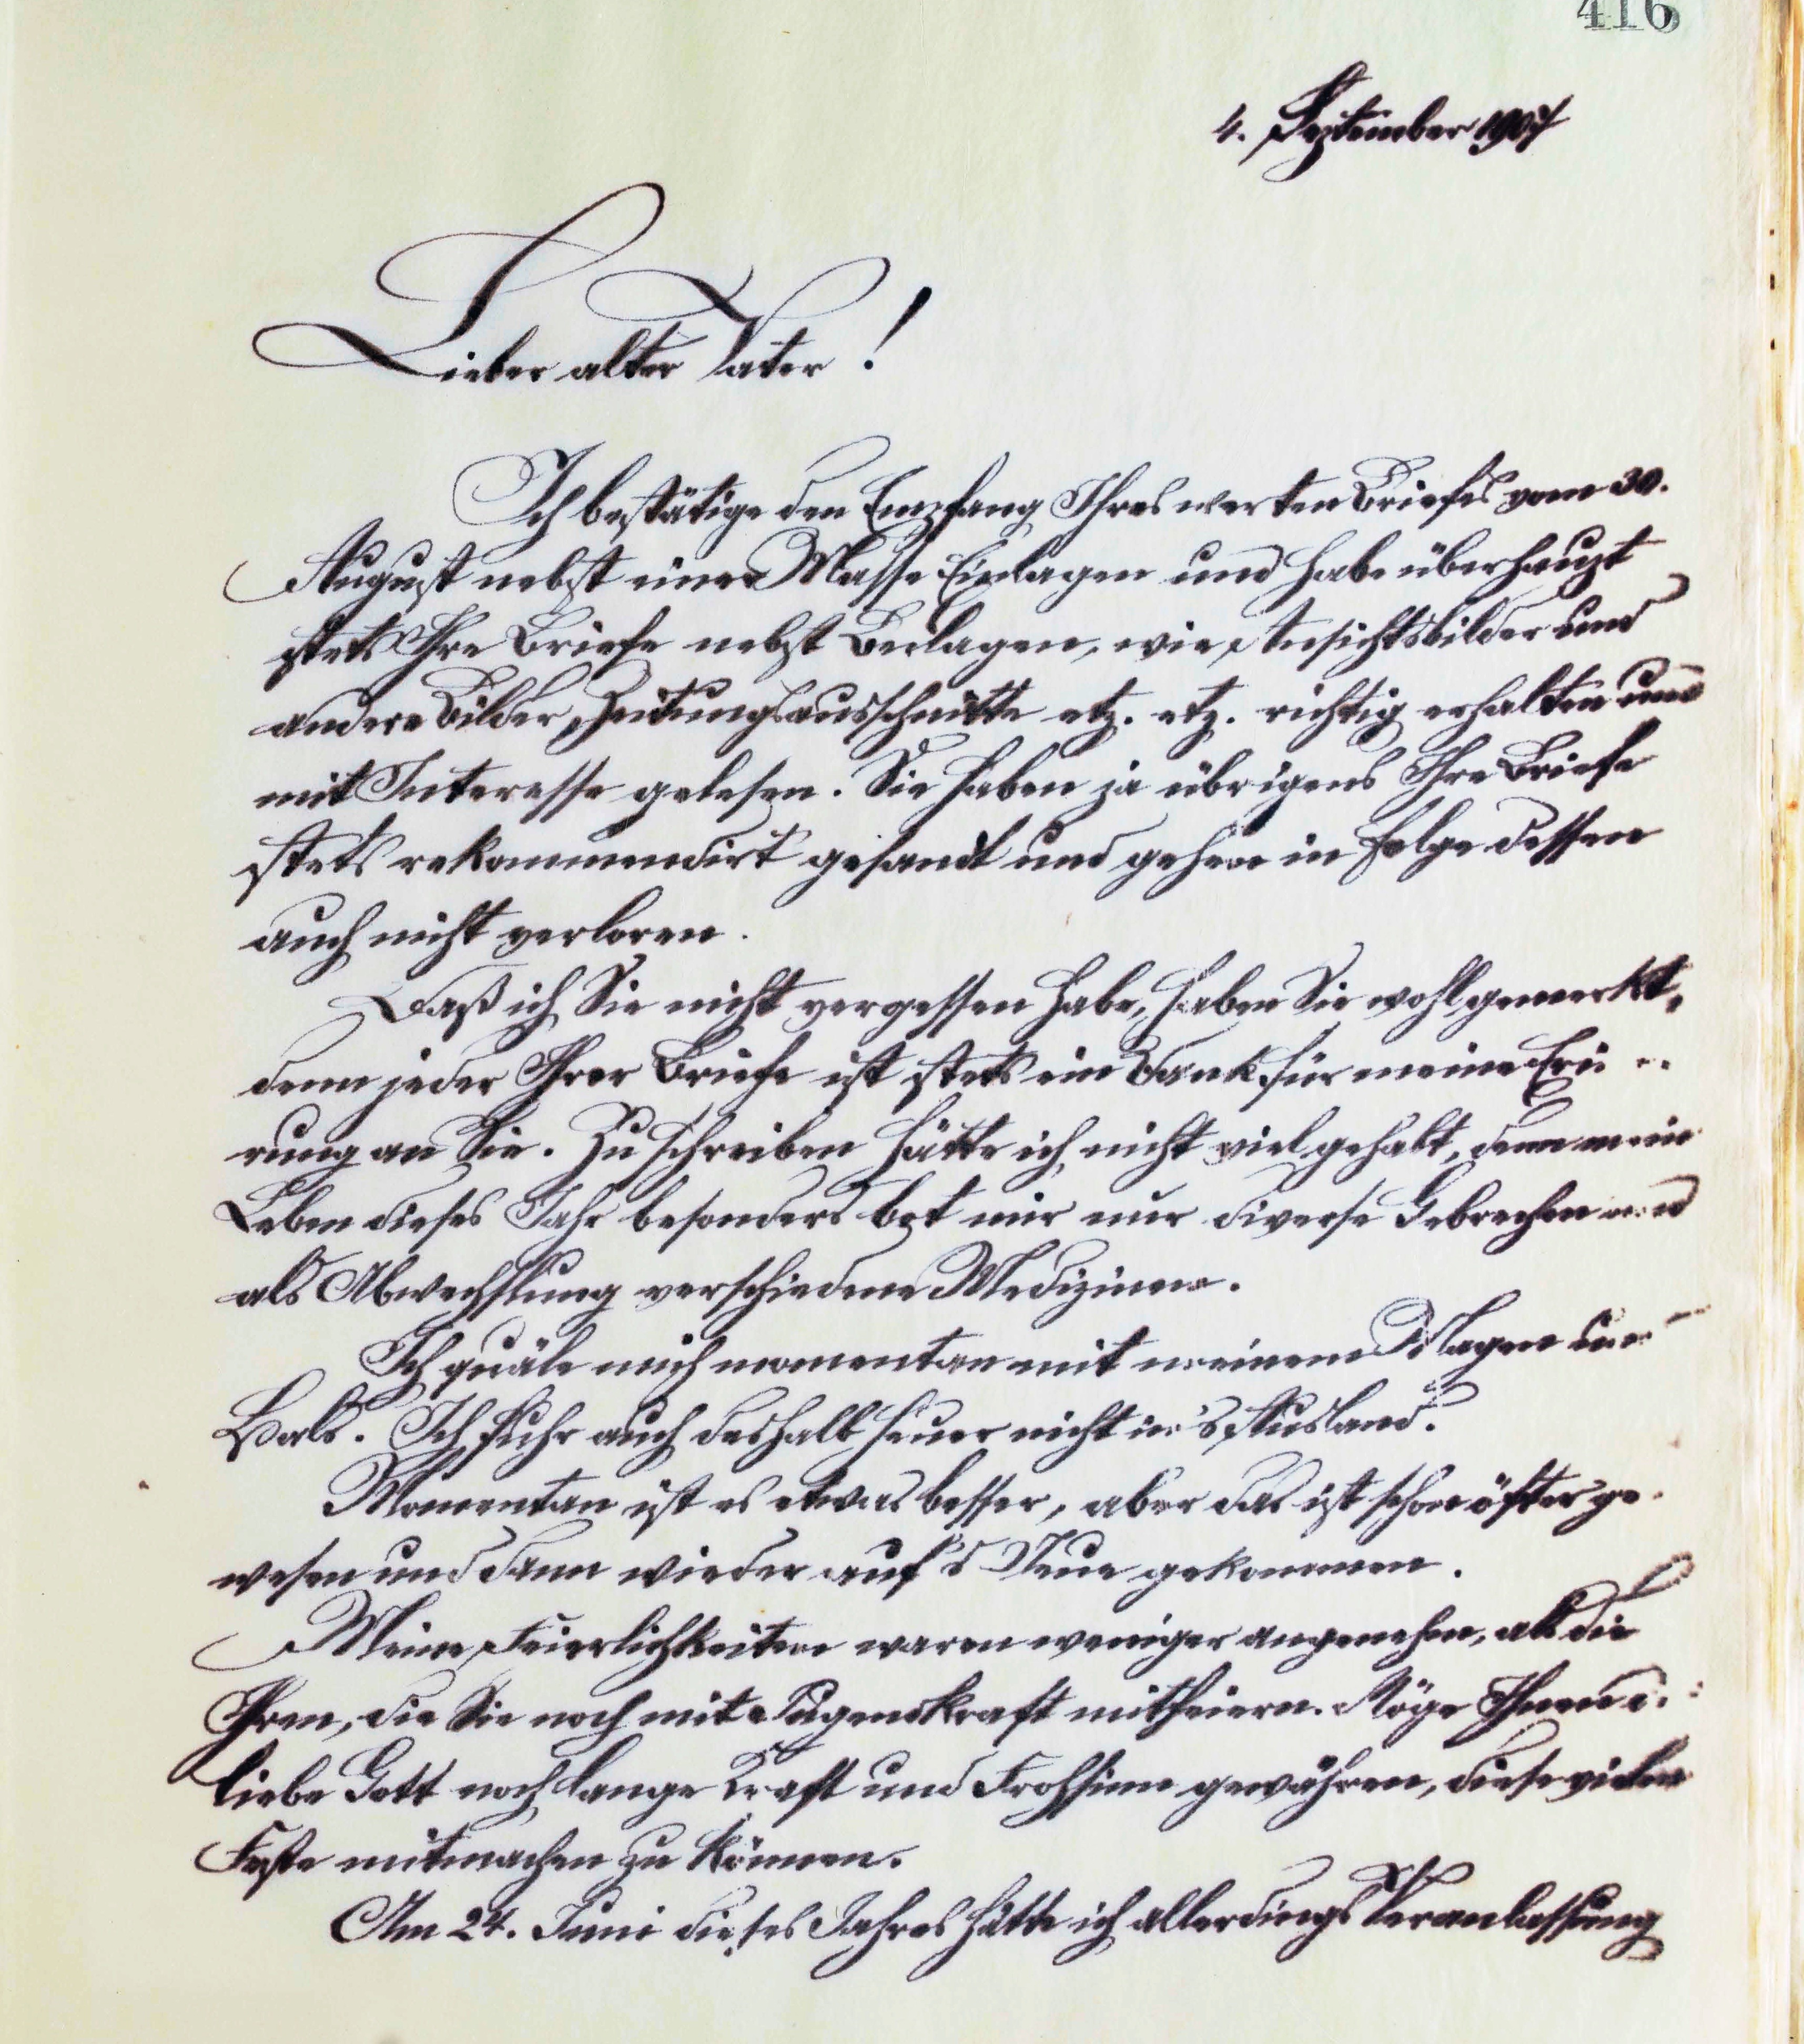 416
4. September 1907
Lieber alter Vater!
Ich bestätige den Empfang Ihres werten Briefes vom 30.
August nebst einer Masse Einlagen und habe überhaupt
stets Ihre Briefe nebst Beilagen, wie Ansichtsbilder und
andere Bilder, Zeitungsausschnitte etz. etz. richtig erhalten und
mit Interesse gelesen. Sie haben ja übrigens Ihre Briefe
stets rekommendirt gesandt und gehen in Folge dessen
auch nicht verloren.
Daß ich Sie nicht vergessen habe, haben Sie wohl gemerkt,
denn jeder Ihrer Briefe ist stets ein Dank für meine
rung an Sie. Zu schreiben hätte ich nicht viel gehabt, denn mein
Leben dieses Jahr besonders bot mir nur diverse Gebrechen und
als Abwechslung verschiedene Medizinen.
Ich quäle mich momentan mit meinem Magen und
Hals. Ich fuhr auch deshalb heuer nicht in's Ausland.
Momentan ist es etwas besser, aber das ist schon öfter ge-
wesen und dann wieder auf's Neue gekommen.
Meine Feierlichkeiten waren weniger angenehm, als die
Ihren, die Sie noch mit Jugendkraft mitfeiern. Möge Ihnen d.
liebe Gott noch lange Kraft und Frohsinn gewähren, diese vielen
Feste mitmachen zu können.
Am 24. Juni dieses Jahres hätte ich allerdings Veranlassung